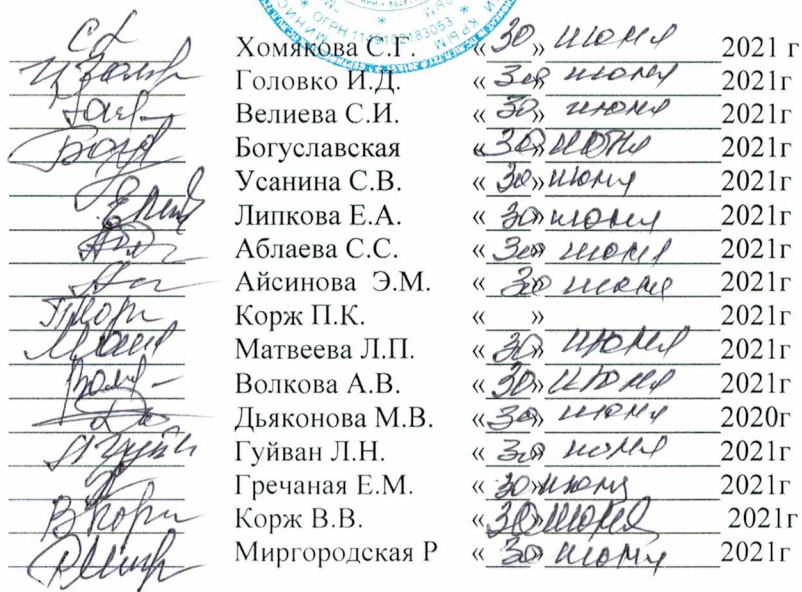 ОГРН 1149102183053
Хомякова С.Г. «30» июня 2021 г
Головко И.Д. «30» июня 2021г
Велиева С.И. «30» июня 2021г
Богуславская «30» июня 2021г
Усанина С.В. «30» июня 2021г
Липкова Е.А. «30» июня 2021г
Аблаева С.С. «30» июня 2021г
Айсинова Э.М. «30» июня 2021г
Корж П.К. «___» 2021г
Матвеева Л.П. «30» июня 2021г
Волкова А.В. «30» июня 2021г
Дьяконова М.В. «30» июня 2020г
Гуйван Л.Н. «30» июня 2021г
Гречаная Е.М. «30» июня 2021г
Корж В.В. «30» июня 2021г
Миргородская Р «30» июня 2021г